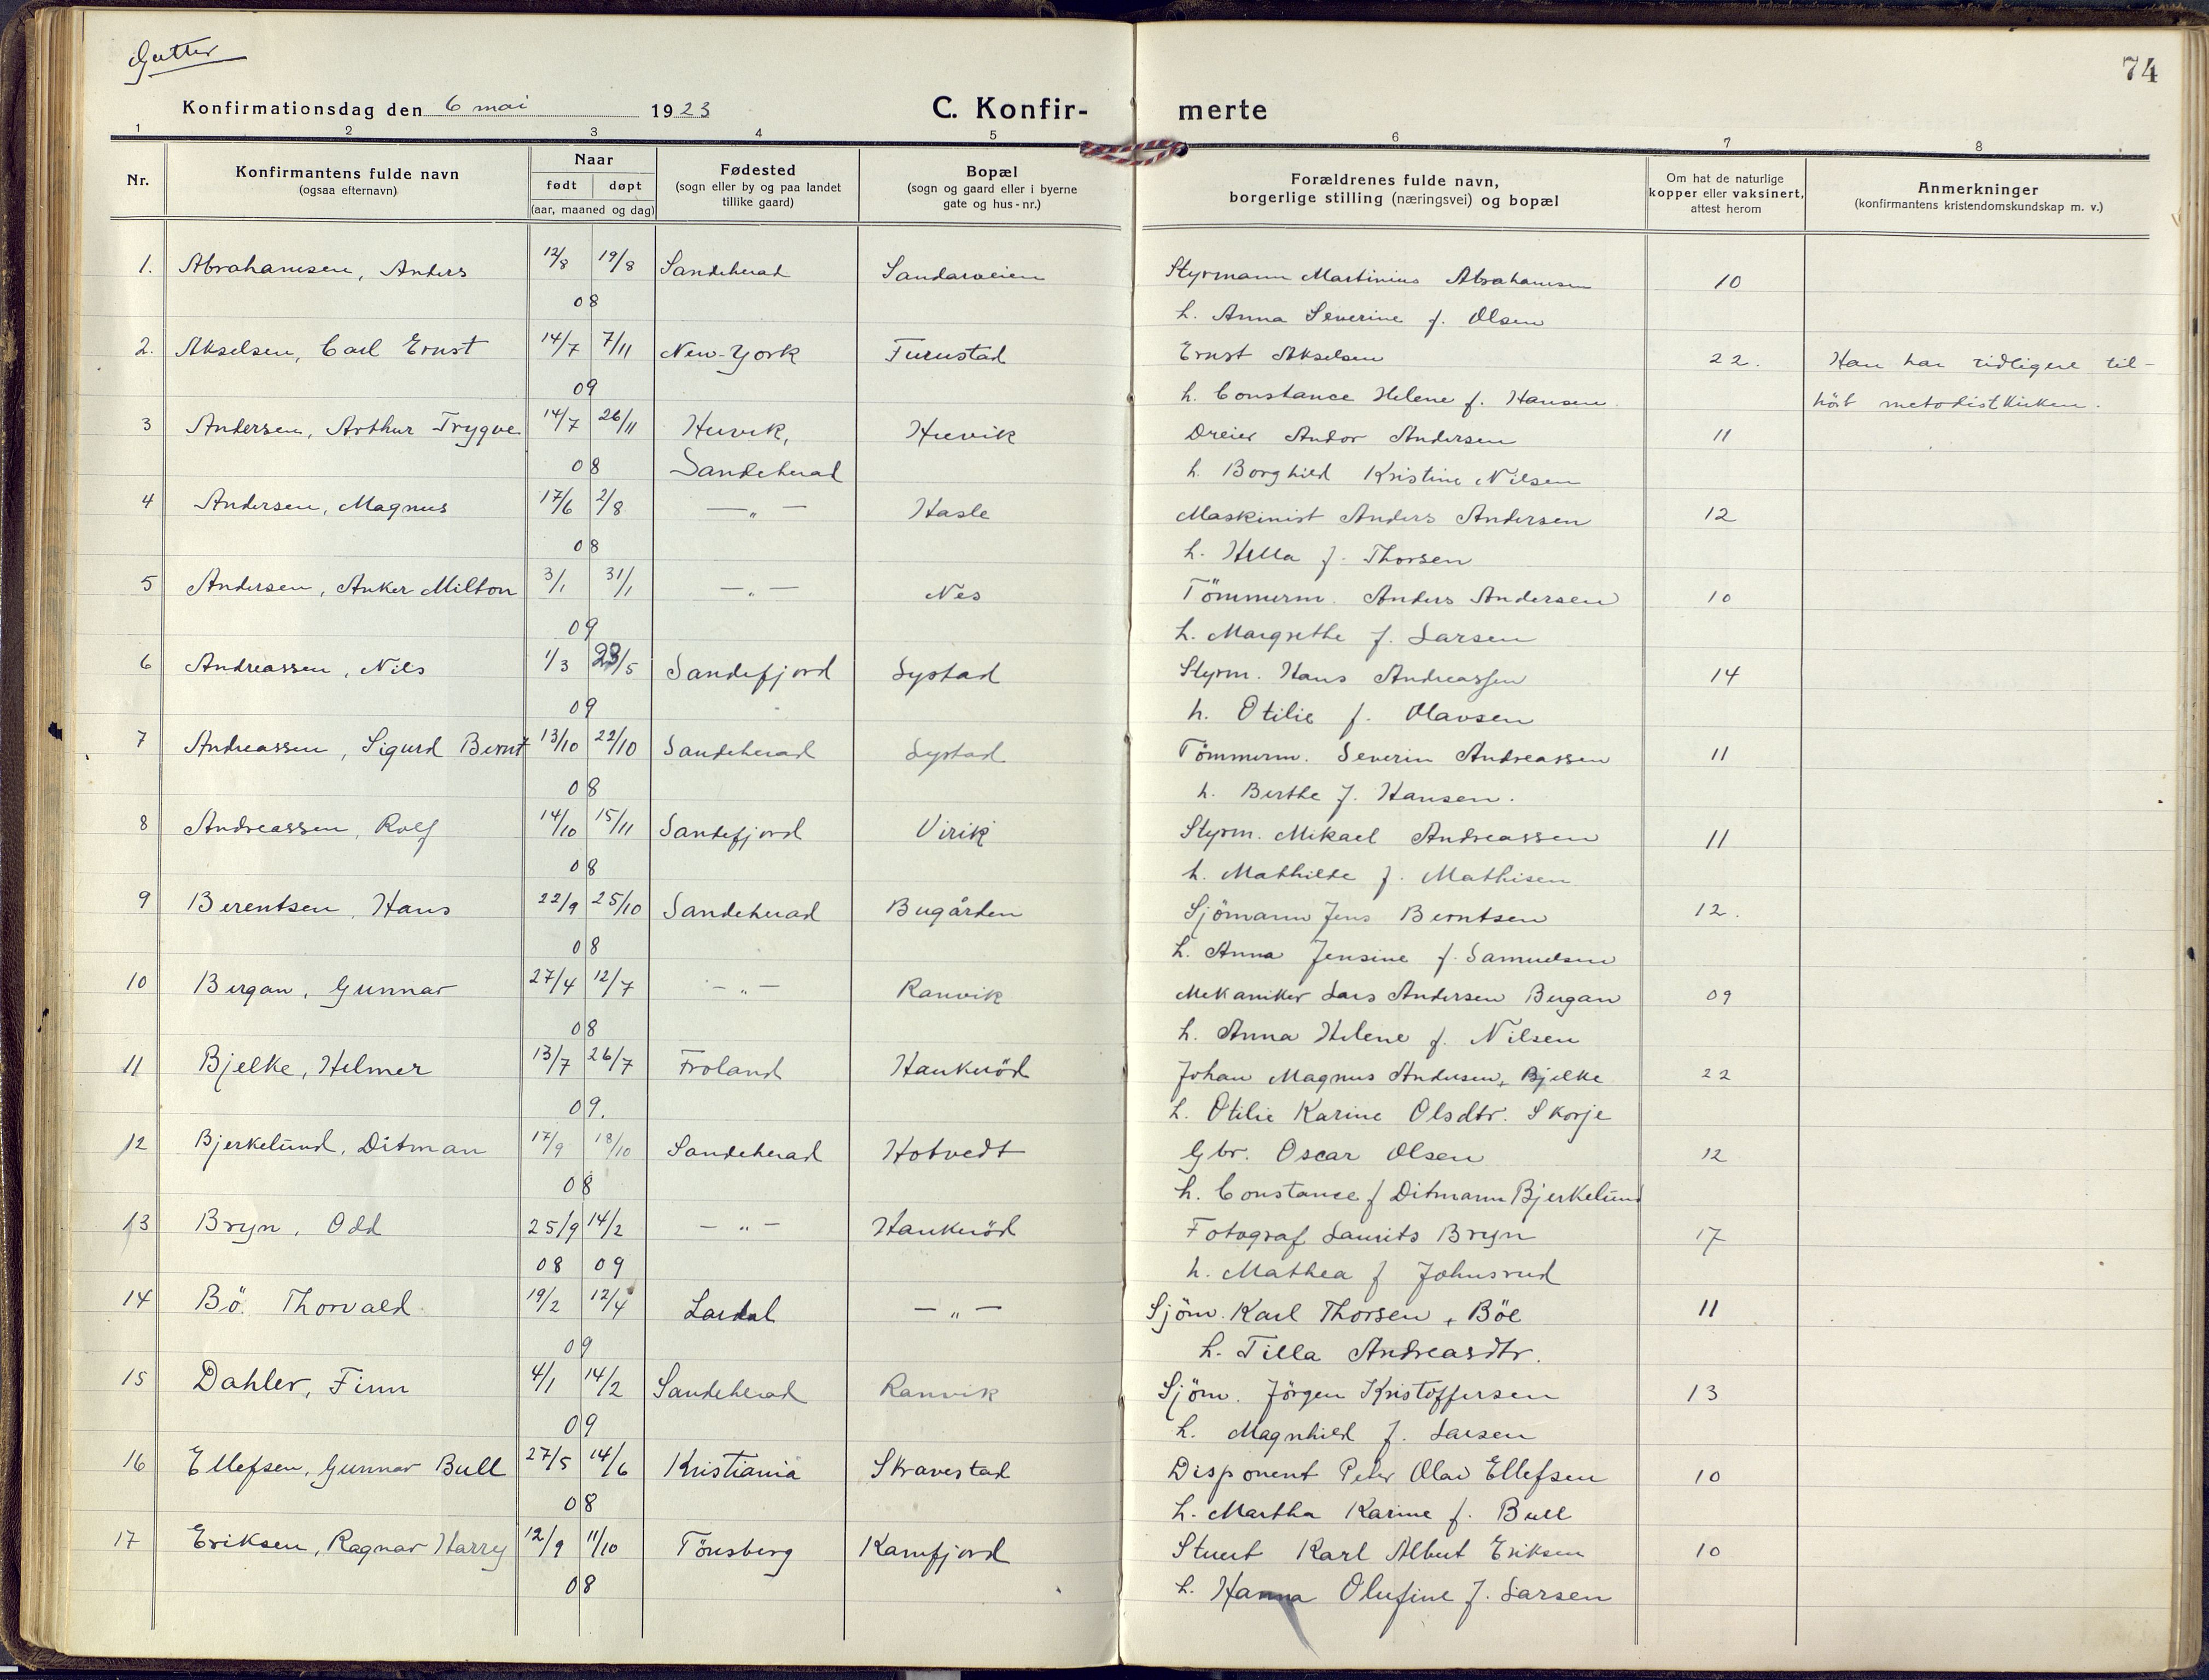 Gutter
74
Konfirmationsdag den 6 mai 1923 C. Konfir- merte
1 2 3 4 5 6 7 8
Nr. Konfirmantens fulde navn (ogsaa efternavn) Naar født døpt (aar, maaned og dag) Fødested (sogn eller by og paa landet tillike gaard) Bopæl (sogn og gaard eller i byerne gate og hus-nr.) Forældrenes fulde navn, borgerlige stilling (næringsvei) og bopæl Om hat de naturlige kopper eller vaksinert, attest herom Anmerkninger (konfirmantens kristendomskundskap m. v.)
1. Abrahamsen, Anders 12/8 19/8 Sandeherad Sandarveien Styrmann Martinius Abrahamsen 10
08 h. Anna Severine f. Olsen
2. Akselsen, Carl Ernst 14/7 7/11 New-York Furustad Ernst Akselsen 22. Han har tidligere til-
09 h. Constance Helene f. Hansen. hört metodistkirken.
3 Andersen, Arthur Trygve 14/7 26/11 Huvik, Huvik Dreier Andor Andersen 11
08 Sandeherad h. Borghild Kristine Nilsen
4 Andersen, Magnus 17/6 2/8 — „ — Hasle Maskinist Anders Andersen 12
08 h. Hella f. Thorsen
5 Andersen, Anker Milton 3/1 31/1 — „ — Nes Tömmerm. Anders Andersen 10
09 h. Margrethe f. Larsen
6 Andreassen, Nils 1/3 23/5 Sandefjord Lystad Styrm. Hans Andreassen 14
09 h. Otilie f. Olavsen
7 Andreassen, Sigurd Bernt 13/10 22/10 Sandeherad Lystad Tömmerm. Severin Andreassen 11
08 h. Berthe f. Hansen.
8 Andreassen, Rolf 14/10 15/11 Sandefjord Virik Styrm. Mikael Andreassen 11
08 h. Mathilde f. Mathisen
9 Berentsen, Hans 22/9 25/10 Sandeherad Bugården Sjömann Jens Berntsen 12.
08 h. Anna Jensine f. Samuelsen
10 Bergan, Gunnar 27/4 12/7 — „ — Ranvik Mekaniker Lars Andersen Bergan 09
08 h. Anna Helene f. Nilsen
11 Bjelke, Helmer 13/7 26/7 Froland Haukeröd Johan Magnus Andersen, Bjelke 22
09. h. Otilie Karine Olsdtr. Skorje
12 Bjerkelund, Ditman 17/9 18/10 Sandeherad Hotvedt Gbr. Oscar Olsen 12
08 h. Constance f Ditmann Bjerkelund
13 Bryn, Odd 25/9 14/2 — „ — Haukeröd Fotograf Laurits Bryn 17
08 09 h. Mathea f Johnsrud
14 Bö. Thorvald 19/2 12/4 Lardal — „ — Sjöm. Karl Thorsen, Böe 11
09 h. Tilla Andreasdtr.
15 Dahler, Finn 4/1 14/2 Sandeherad Ranvik Sjöm. Jörgen Kristoffersen 13
09 h. Magnhild f. Larsen
16 Ellefsen, Gunnar Bull 27/5 14/6 Kristiania Skravestad Disponent Peter Olav Ellefsen 10
08 h. Martha Karine f. Bull
17 Eriksen, Ragnar Harry 12/9 11/10 Tönsberg Kamfjord Stuert Karl Albert Eriksen 10
08 h. Hanna Olufine f. Larsen